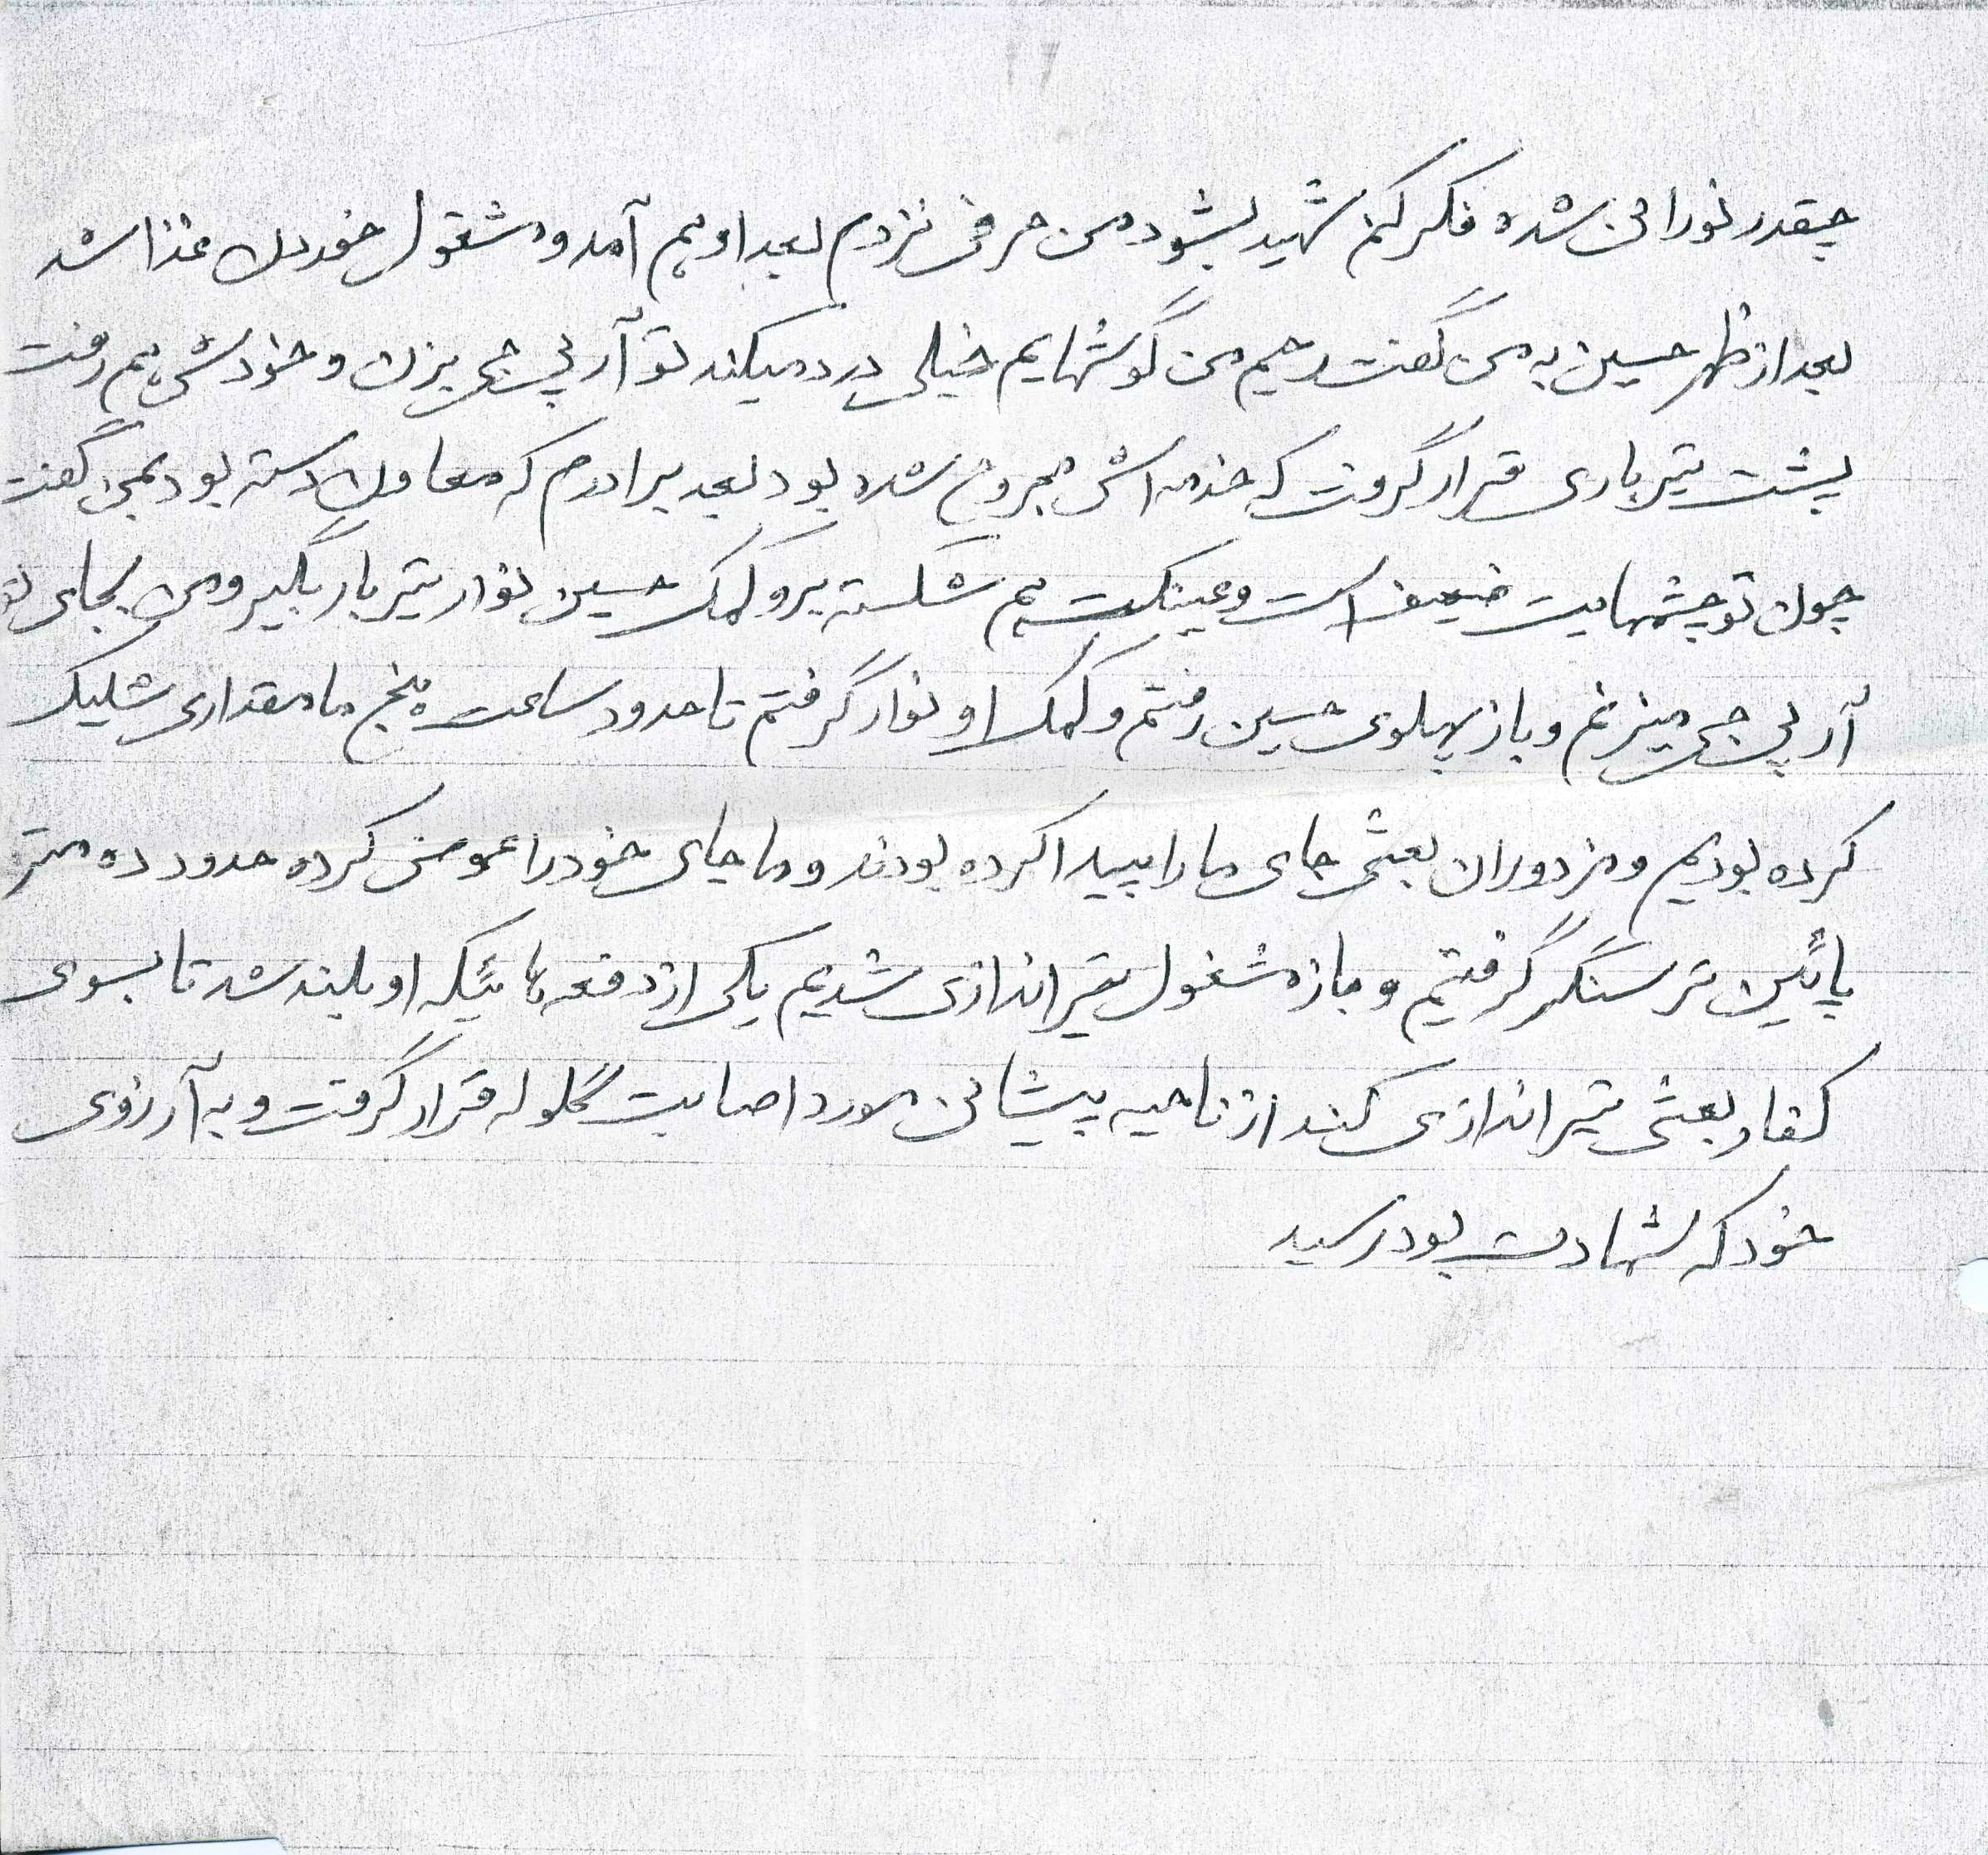 چقدر نورانی شده فکر کنم شهید بشود من حرفی نزدم بعد او هم آمد و مشغول خوردن غذا شد
بعد از ظهر حسین به من گفت رحیم من گوشهایم خیلی درد میکند تو آر پی جی بزن و خودش هم رفت
پشت تیرباری قرار گرفت که خدمه اش مجروح شده بود بعد برادرم که معاون دسته بود بمن گفت
چون تو چشمهایت ضعیف است و عینکت هم شکسته برو کمک حسین نوار تیربار بگیر و من بجای تو
آر پی جی میزنم و باز پهلوی حسین رفتم و کمک او نوار گرفتم تا حدود ساعت پنج ما مقداری شلیک
کرده بودیم و مزدوران بعثی جای ما را پیدا کرده بودند و ما جای خود را عوض کرده حدود ده متر
پائین تر سنگر گرفتیم و باز مشغول تیراندازی شدیم یکی از دفعه هائیکه او بلند شد تا بسوی
کفار بعثی تیراندازی کند از ناحیه پیشانی مورد اصابت گلوله قرار گرفت و به آرزوی
خود که شهادت بود رسید